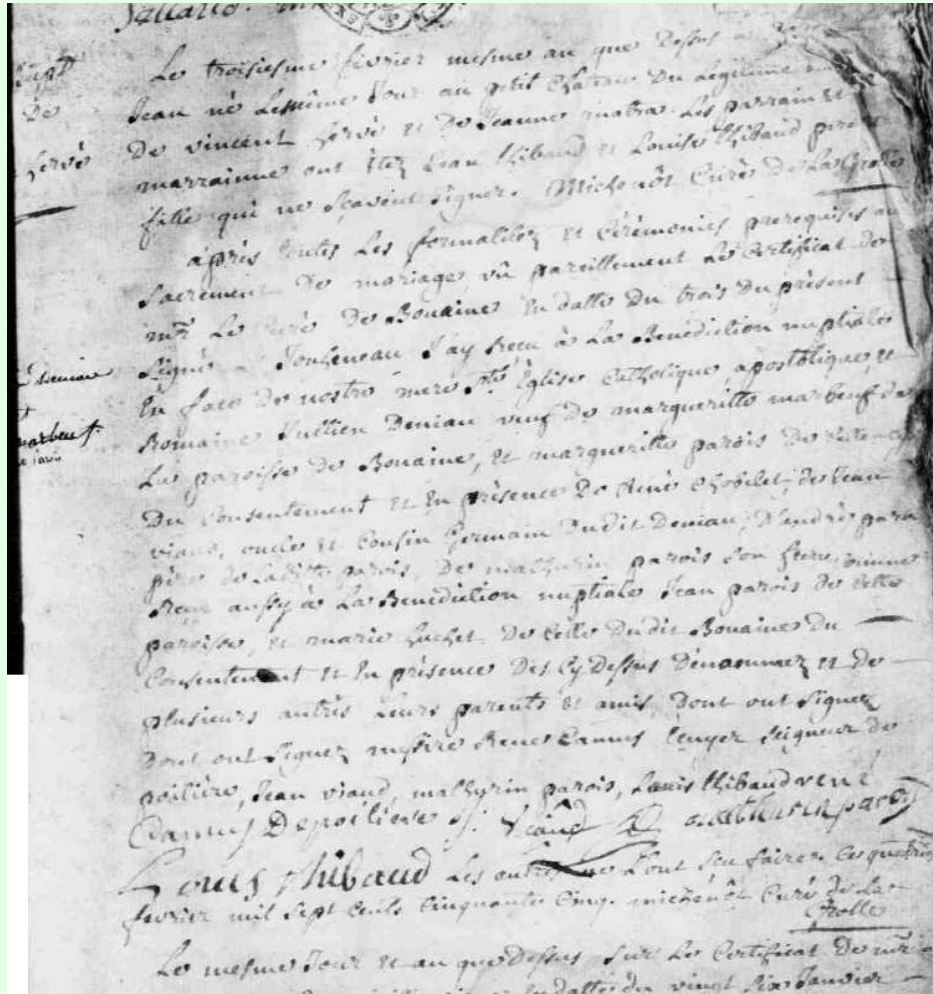 Le troisiesme fevrier mesme an que Dessus a
Jean né Le mesme Jour au petit Château Du Legitime
De vincent hervé et De Jeanne Les parrain et
hervé
marrainne ont êtez Jean thibaud et Louise thibaud
fille qui ne sçavent signer. Michenôt Curé De La Grolle
après toutes Les formalitez et Cérémonies prerequises au
Sacrement De mariage, vû pareillement Le Certificat De
mr Le Curé De Bouaine En datte Du trois Du présent
Signé Joy Receu à La Benediction nuptiale
En face De nostre mere ste Eglise Catholique, apostolique, et
Romaine Jullien Deniau veuf De margueritte marbeuf De
marbeuf.
La paroisse De Bouaine, et margueritte parois De
Du Consentement et En présence De Chobelet, De Jean
viaud, oncle et Cousin Germain Dudit Deniau, D'andré
père De Laditte parois, De mathurin parois Son frere, Comme
Receu aussy à La Benediction nuptiale Jean parois De Cette
paroisse, et marie huchet De Celle Dudit Bouaine Du
Consentement et En présence Des Cy Dessus Dénommez et De
plusieurs autres Leurs parents et amis, Dont ont Signez
Dont ont Signez messire René Camus Ecuyer Seigneur De
poilière, Jean viaud, mathurin parois, Louis thibaud rené
Camus De poiliere J. Viaud mathurin parois
Louis thibaud Les autres ne L'ont sçu faire. Ce quatre
fevrier mil Sept Cents Cinquante Cinq. michenôt Curé De La
Grolle
Le mesme Jour et an que Dessus Sur Le Certificat De mr
En datte du vingt Six Janvier